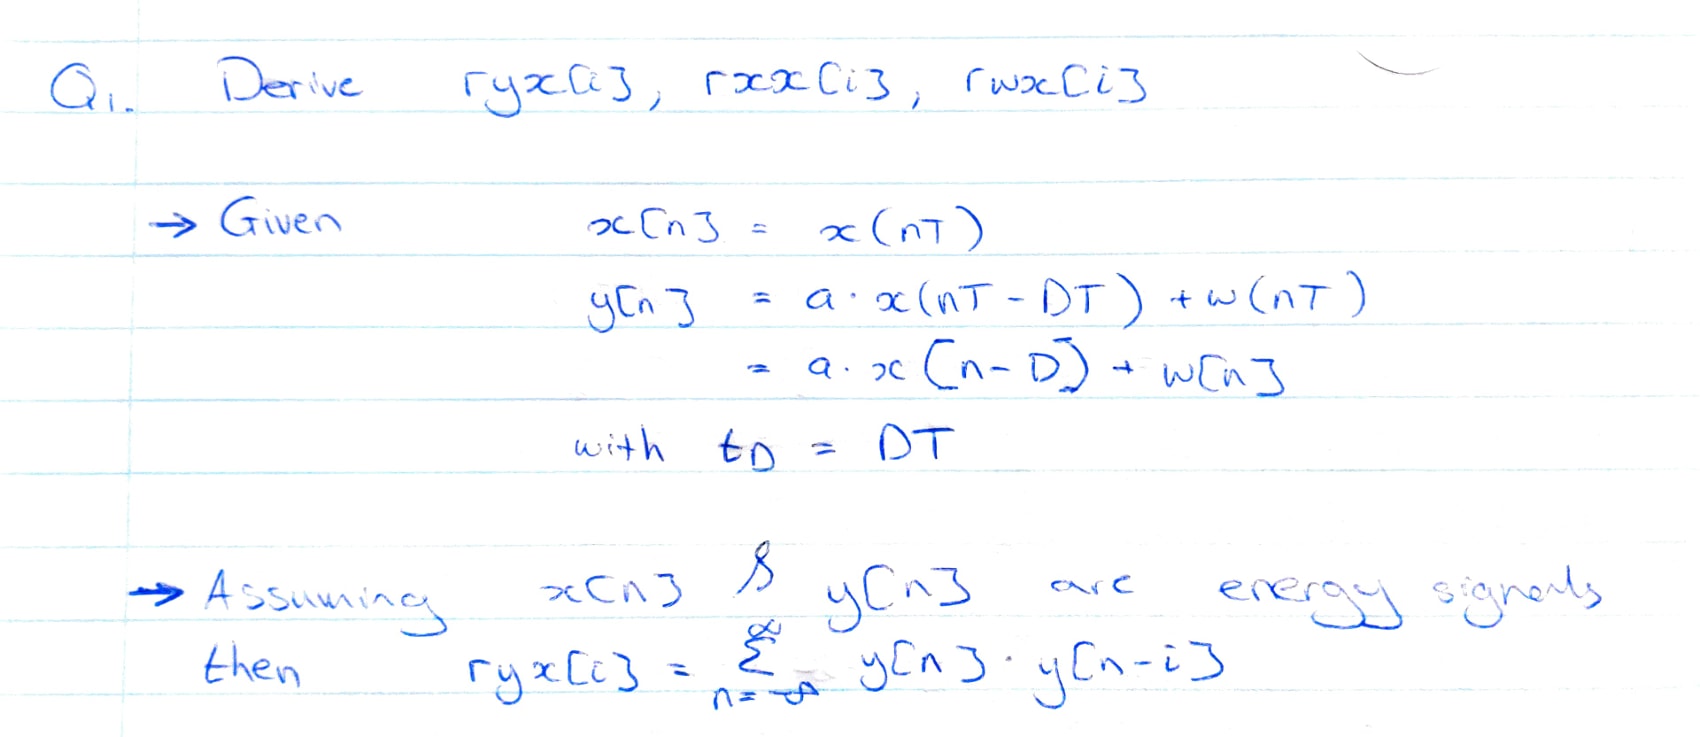 Q1. Derive ryx[i], rxx[i], rwx[i]
→ Given x[n] = x(nT)
y[n] = a · x(nT - DT) + w(nT)
= a · x[n-D] + w[n]
with tD = DT
→ Assuming x[n] & y[n] are energy signals
then ryx[i] = ∑_{n=-∞}^{∞} y[n] · y[n-i]